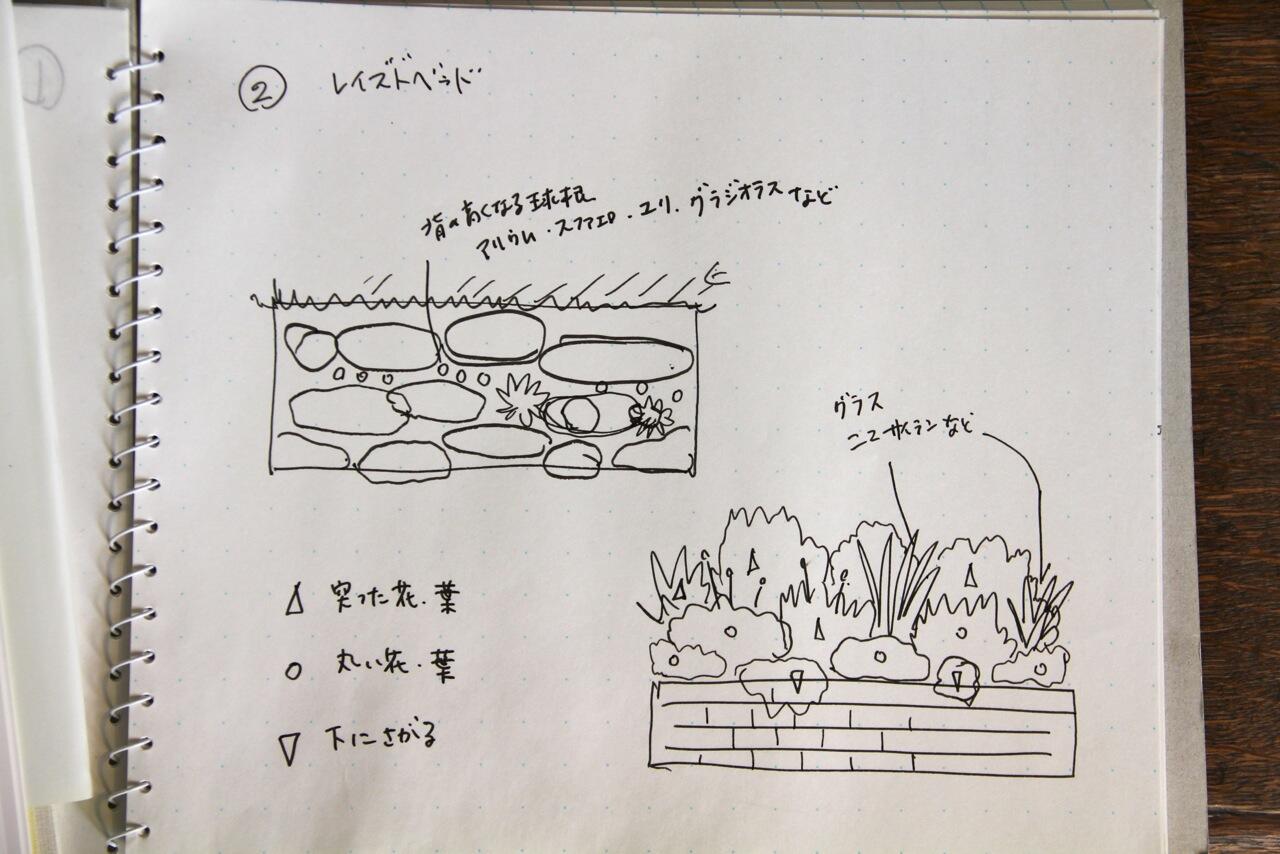 ②　レイズドベッド
背の高くなる球根
アリウム・スファエロ・ユリ・グラジオラスなど
グラス
ニューサイランなど
△ 尖った花・葉
○ 丸い花・葉
▽ 下にさがる
①